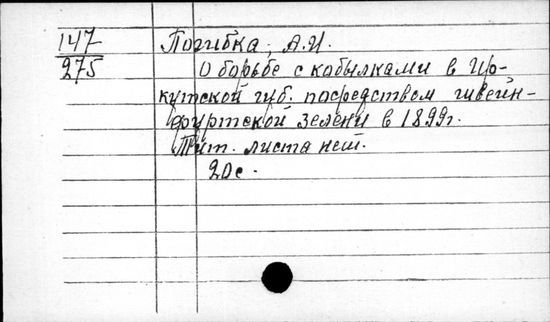 147
275
Погибка, А.И.
О борьбе с кобылками в Ир-
кутской губ. посредством швейн-
фуртской зелени в 1899г.
Тит. листа нет.
20с.